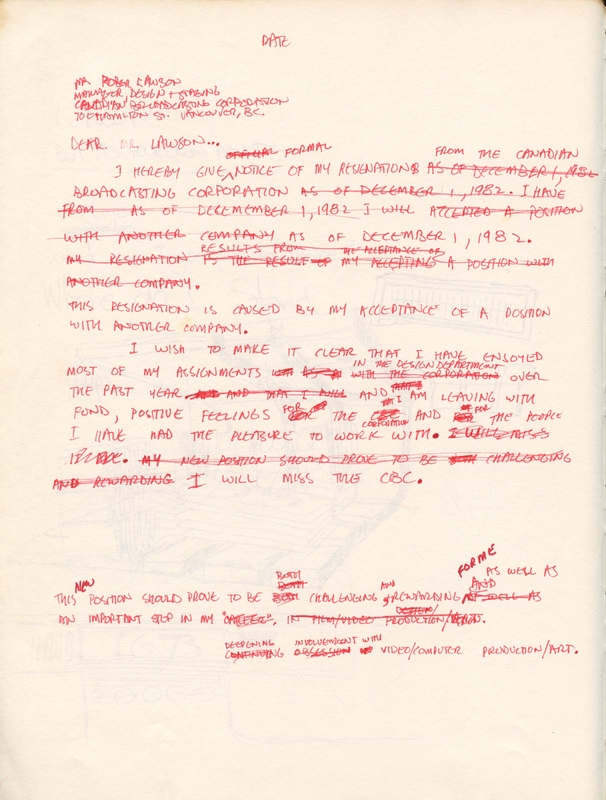 DATE
MR ROBER LAWSON
MANAGER, DESIGN + STAGING
CANADIAN BROADCASTING CORPORATION
700 HAMILTON ST. VANCOUVER, BC.
DEAR MR. LAWSON...
OFFICIAL FORMAL FROM THE CANADIAN
I HEREBY GIVE NOTICE OF MY RESIGNATION AS OF DECEMBER 1, 1982
BROADCASTING CORPORATION AS OF DECEMBER 1, 1982. I HAVE
FROM AS OF DECEMEMBER 1, 1982 I WILL ACCEPTED A POSITION
WITH ANOTHER COMPANY AS OF DECEMBER 1, 1982.
RESULTS FROM THE ACCEPTANCE OF
MY RESIGNATION IS THE RESULT OF MY ACCEPTING A POSITION WITH
ANOTHER COMPANY.
THIS RESIGNATION IS CAUSED BY MY ACCEPTANCE OF A POSITION
WITH ANOTHER COMPANY.
I WISH TO MAKE IT CLEAR THAT I HAVE ENJOYED
IN THE DESIGN DEPARTMENT
MOST OF MY ASSIGNMENTS WITH THE CORPORATION OVER
THE PAST YEAR AND THAT I WILL AND THAT I AM LEAVING WITH
FOND, POSITIVE FEELINGS FOR THE CBC AND FOR THE PEOPLE
CORPORATION
I HAVE HAD THE PLEASURE TO WORK WITH. I WILL MISS
MY NEW POSITION SHOULD PROVE TO BE CHALLENGING
AND REWARDING I WILL MISS THE CBC.
FOR ME
NEW BOTH AND AS WELL AS
THIS POSITION SHOULD PROVE TO BE BOTH CHALLENGING REWARDING AND AS WELL AS
DESIGN/
AN IMPORTANT STEP IN MY "CAREER". IN FILM/VIDEO PRODUCTION/
DEEPENING INVOLVEMENT WITH
CONTINUING OBSESSION VIDEO/COMPUTER PRODUCTION/ART.